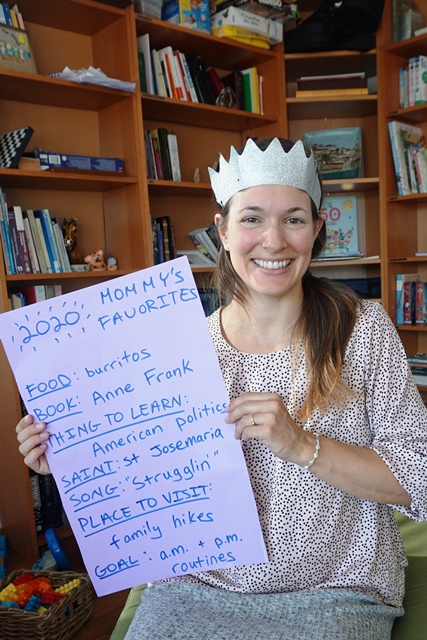 2020 MOMMY'S
FAVORITES
FOOD: burritos
BOOK: Anne Frank
THING TO LEARN:
American Politics
SAINT: St Josemaria
SONG: "Strugglin"
PLACE TO VISIT:
family hikes
GOAL: a.m. + p.m.
routines